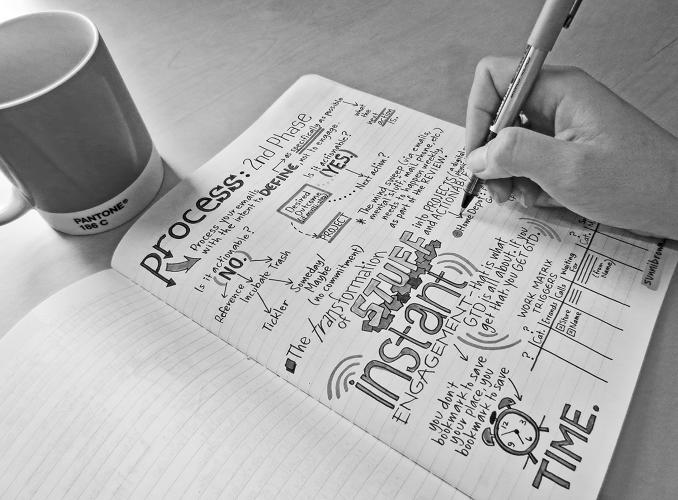 PANTONE®
186 C
Process: 2nd Phase
Process your emails
with the intent to DEFINE,
as specifically as possible
what
the
next
action
is..
not to engage.
Is it actionable?
(NO!)
Reference
Incubate
Trash
Tickler
Someday/
Maybe
(no commitment)
Is it actionable?
(YES!)
Desired
Outcome
PROJECT
Next action?
* The mind sweep (via emails,
mental "stuff," mail, phone, etc.)
needs to happen weekly,
as part of the REVIEW.
The transformation
of
STUFF
into PROJECTS
and ACTIONABLE
@Home Dep
instant
ENGAGEMENT - that is what
GTD is all about. if you
get that, you GET GTD.
you don't
bookmark to save
your place, you
bookmark to save
TIME.
? WORK MATRIX
TRIGGERS
? Cat.
Errands
Calls
Waiting
For
@Store
@Name
Cat.
(from
Name)
sunnibrown